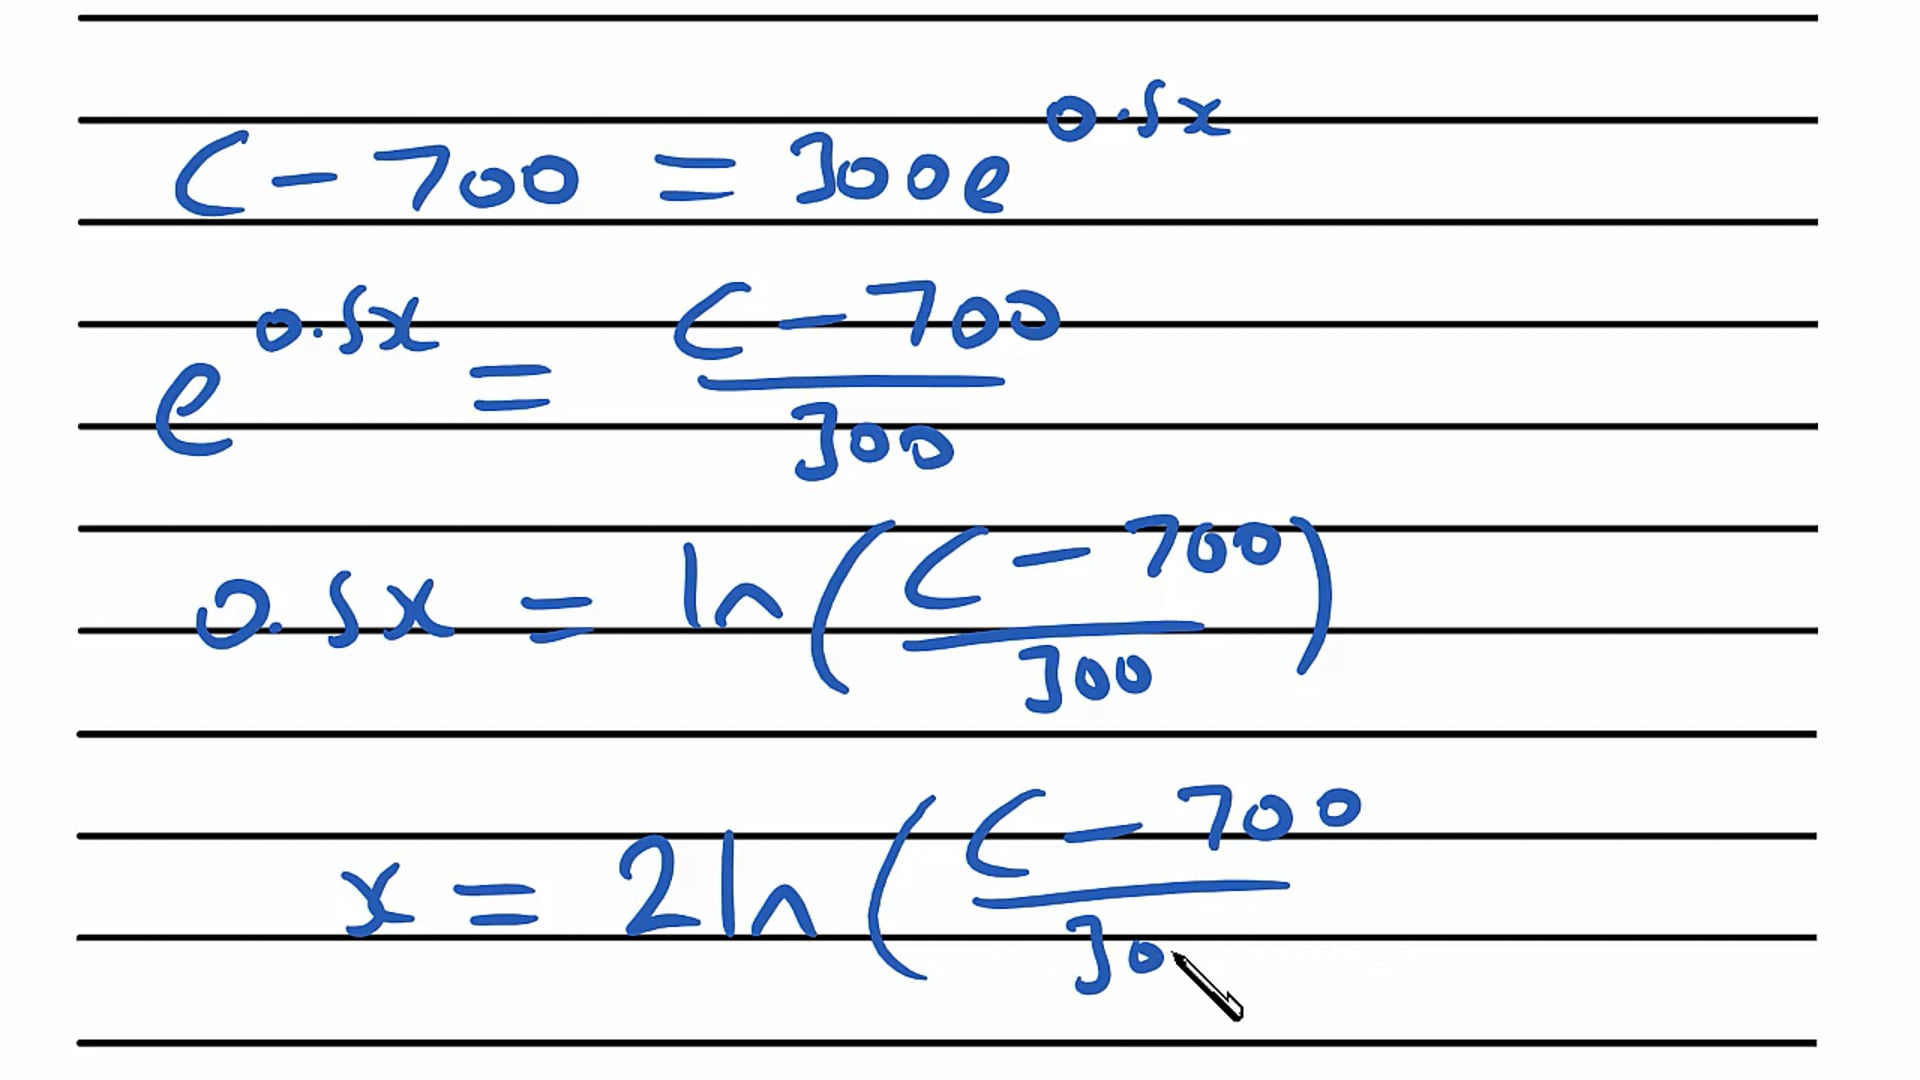 C - 700 = 300e^{0.5x}
e^{0.5x} = \frac{C - 700}{300}
0.5x = ln(\frac{C - 700}{300})
x = 2ln(\frac{C - 700}{30}